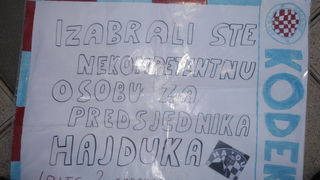 IZABRALI STE
NEKOMPETENTNU
OSOBU ZA
PREDSJEDNIKA
HAJDUKA
KODEK